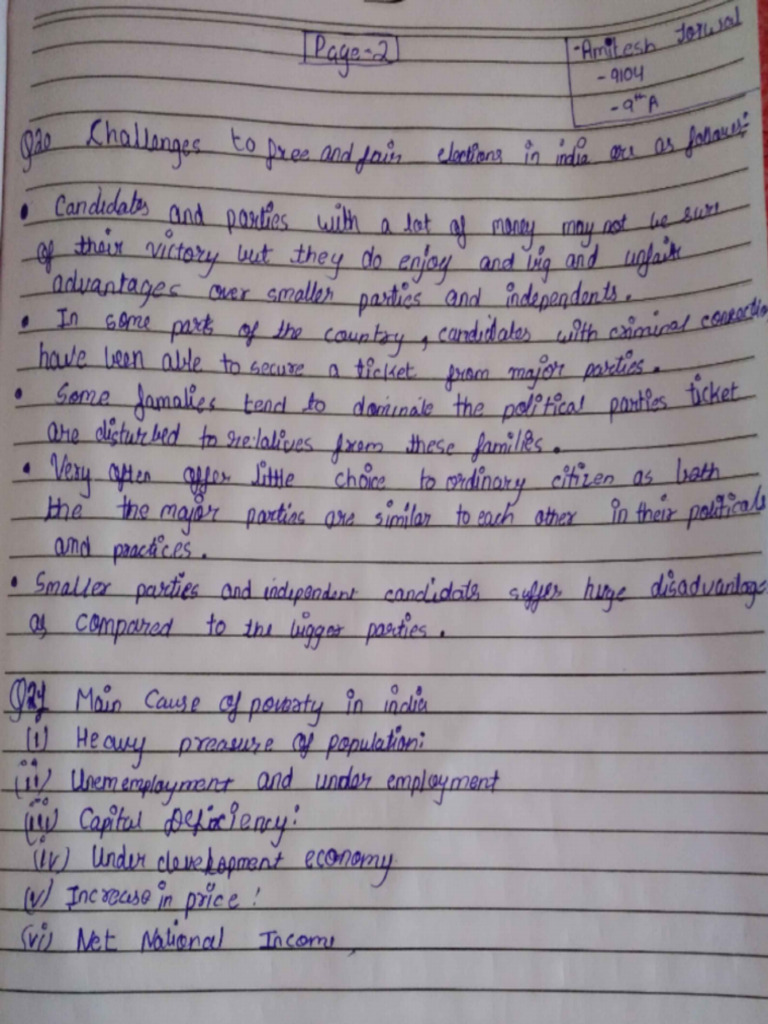 Page-2
-Amitesh Jorwal
-9104
-9th A
Q20 Challanges to free and fair elections in india are as follows:-
• Candidates and parties with a lot of money may not be sure
of their victory but they do enjoy and big and unfair
advantages over smaller parties and independents.
• In some parts of the country, candidates with criminal connection
have been able to secure a ticket from major parties.
• Some famalies tend to dominate the political parties ticket
are disturbed to relatives from these families.
• Very often offer little choice to ordinary citizen as both
the the major parties are similar to each other in their politicals
and practices.
• Smaller parties and independent candidates suffer huge disadvantage
as compared to the bigger parties.
Main Cause of poverty in india
(i) Heavy preasure of population:
(ii) Unememployment and under employment
(iii) Capital Deficiency:
(iv) Under development economy
(v) Increase in price!
(vi) Net National Income,